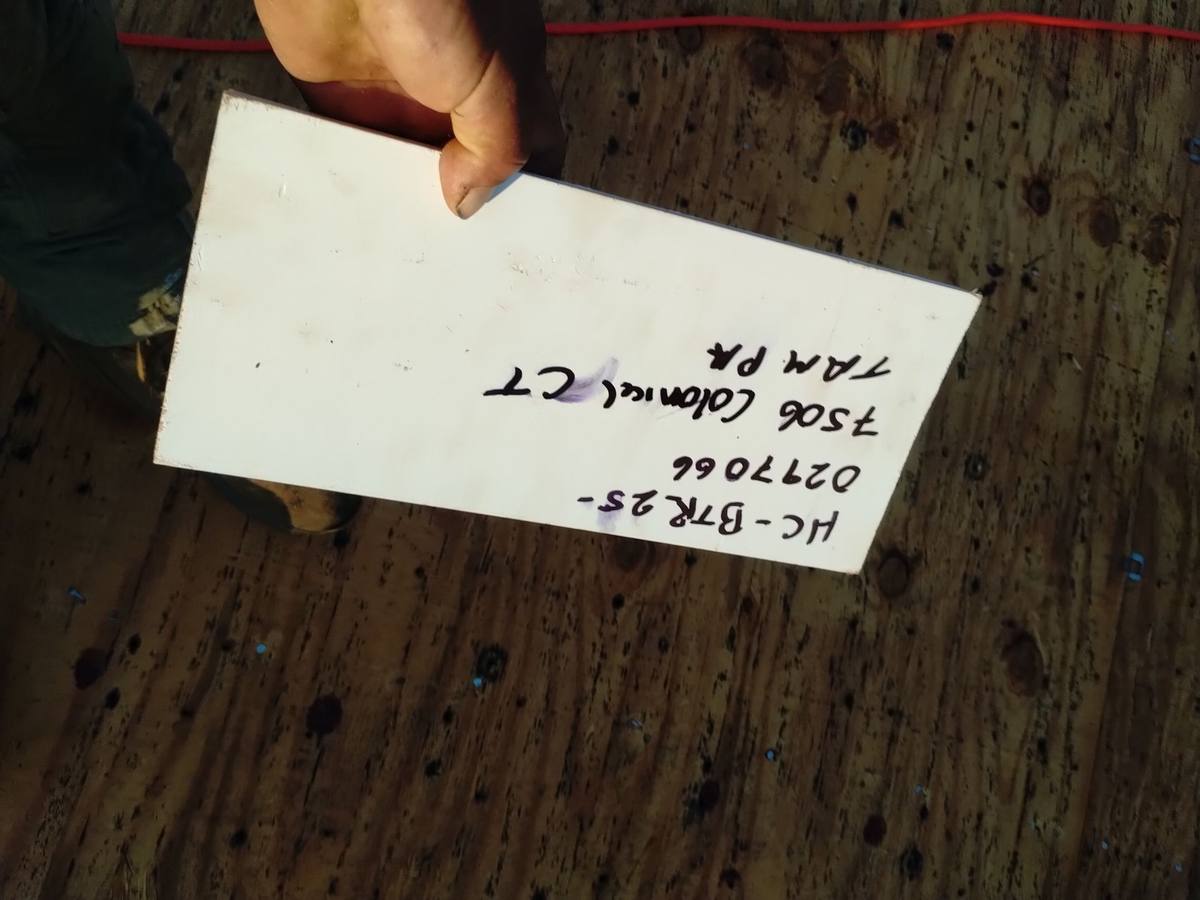 HC-BTR 25-
0297066
7506 Colonial CT
TAMPA